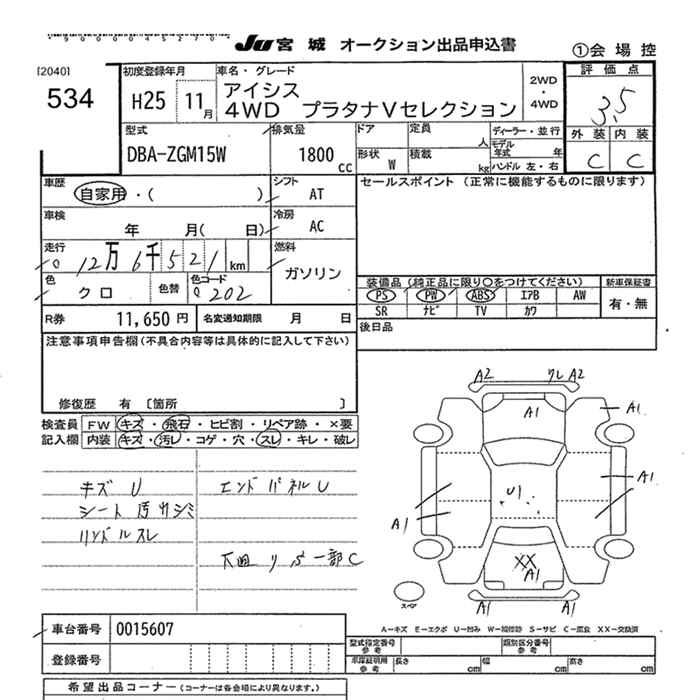 JU 宮 城 オークション出品申込書
①会 場 控
[2040]
534
初度登録年月
H25 11月
車名・グレード
アイシス
4WD プラタナVセレクション
2WD
・
4WD
評 価 点
3.5
外 装 内 装
C C
型式
DBA-ZGM15W
排気量
1800 cc
ドア
定員
人
ディーラー・並行
モデル年式 年
形状 W
積載 kg
ハンドル 左・右
車歴
自家用・( )
シフト
AT
セールスポイント (正常に機能するものに限ります)
車検
年 月( 日)
冷房
AC
走行
12万6千521km
燃料
ガソリン
色
クロ
色替
色コード
202
装備品 (純正品に限り○をつけてください)
新車保証書
PS PW ABS エアB AW
SR ナビ TV カワ
有・無
R券 11,650 円
名変通知期限 月 日
後日品
注意事項申告欄 (不具合内容等は具体的に記入して下さい)
修復歴 有 〔箇所 〕
検査員
記入欄
FW キズ・飛石・ヒビ割・リペア跡・×要
内装 キズ・汚レ・コゲ・穴・スレ・キレ・破レ
キズ U
エンドパネルU
シート 汚サシミ
ハンドルスレ
下回リ サビ 一部C
A2 ワレ A2
A1 A1
A1
U1
A1
XX A1
A1 A1
スペア
A=キズ E=エクボ U=凹み W=補修跡 S=サビ C=腐食 XX=交換済
車台番号 0015607
登録番号
型式指定番号
参考
類別区分番号
参考
車庫証明用
参考
長さ cm 幅 cm 高さ cm
希望出品コーナー (コーナーは各会場により異なります。)